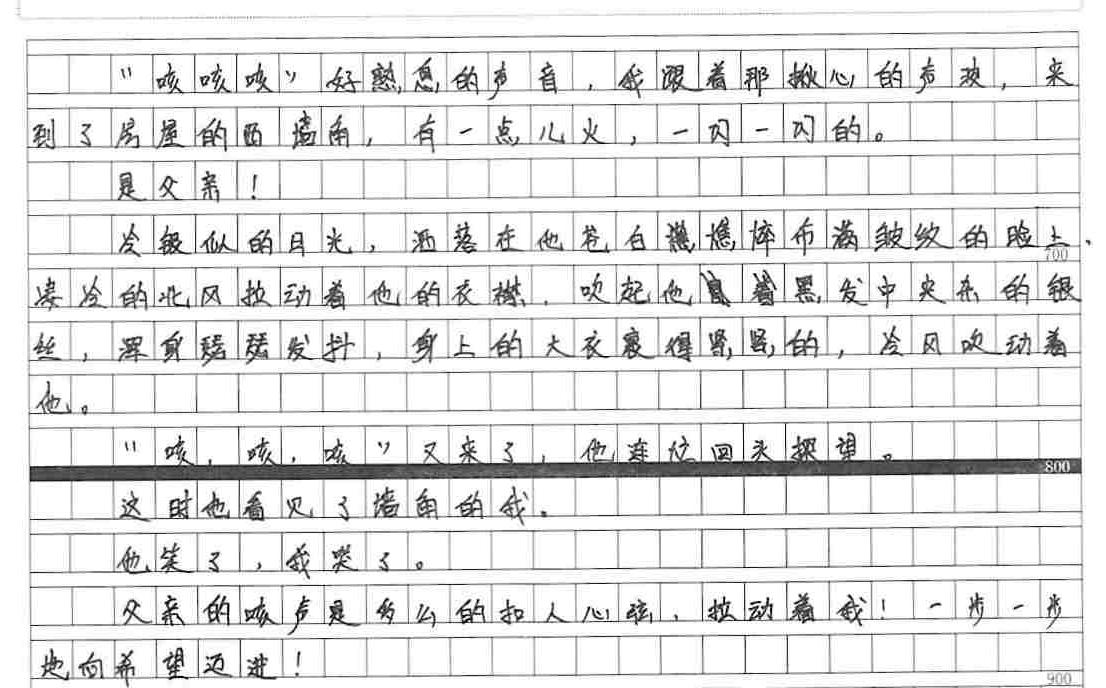 "咳咳咳"好熟息的声音,我跟着那揪心的声波,来
到了房屋的西墙角,有一点儿火,一闪一闪的。
是父亲!
冷银似的月光,洒落在他苍白憔悴布满皱纹的脸上、
700
凄冷的北风拉动着他的衣襟,吹起他黑发中夹杂的银
丝,浑身瑟瑟发抖,身上的大衣裹得紧紧的,冷风吹动着
他。
"咳,咳,咳"又来了,他连忙回头探望。
800
这时他看见了墙角的我。
他笑了,我哭了。
父亲的咳声是多么的扣人心弦,拉动着我!一步一步
地向希望迈进!
900